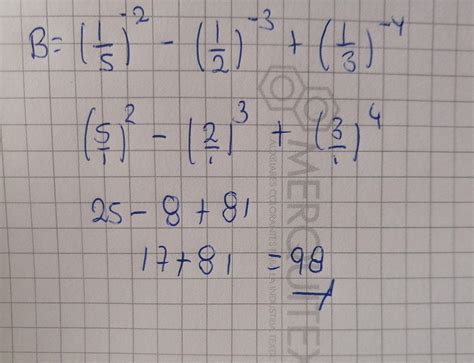 B = (1/5)^-2 - (1/2)^-3 + (1/3)^-4
(5/1)^2 - (2/1)^3 + (3/1)^4
25 - 8 + 81
17 + 81 = 98
MERQUITEX